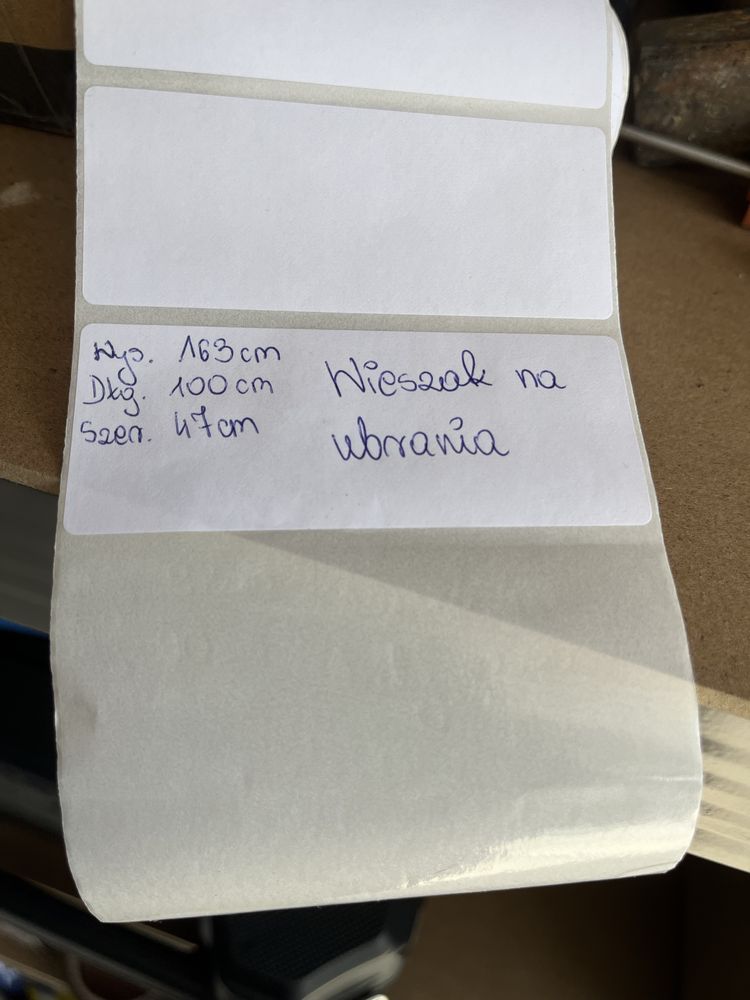 Wys. 163 cm
Dłg. 100 cm
Szer. 47 cm
Wieszak na
ubrania